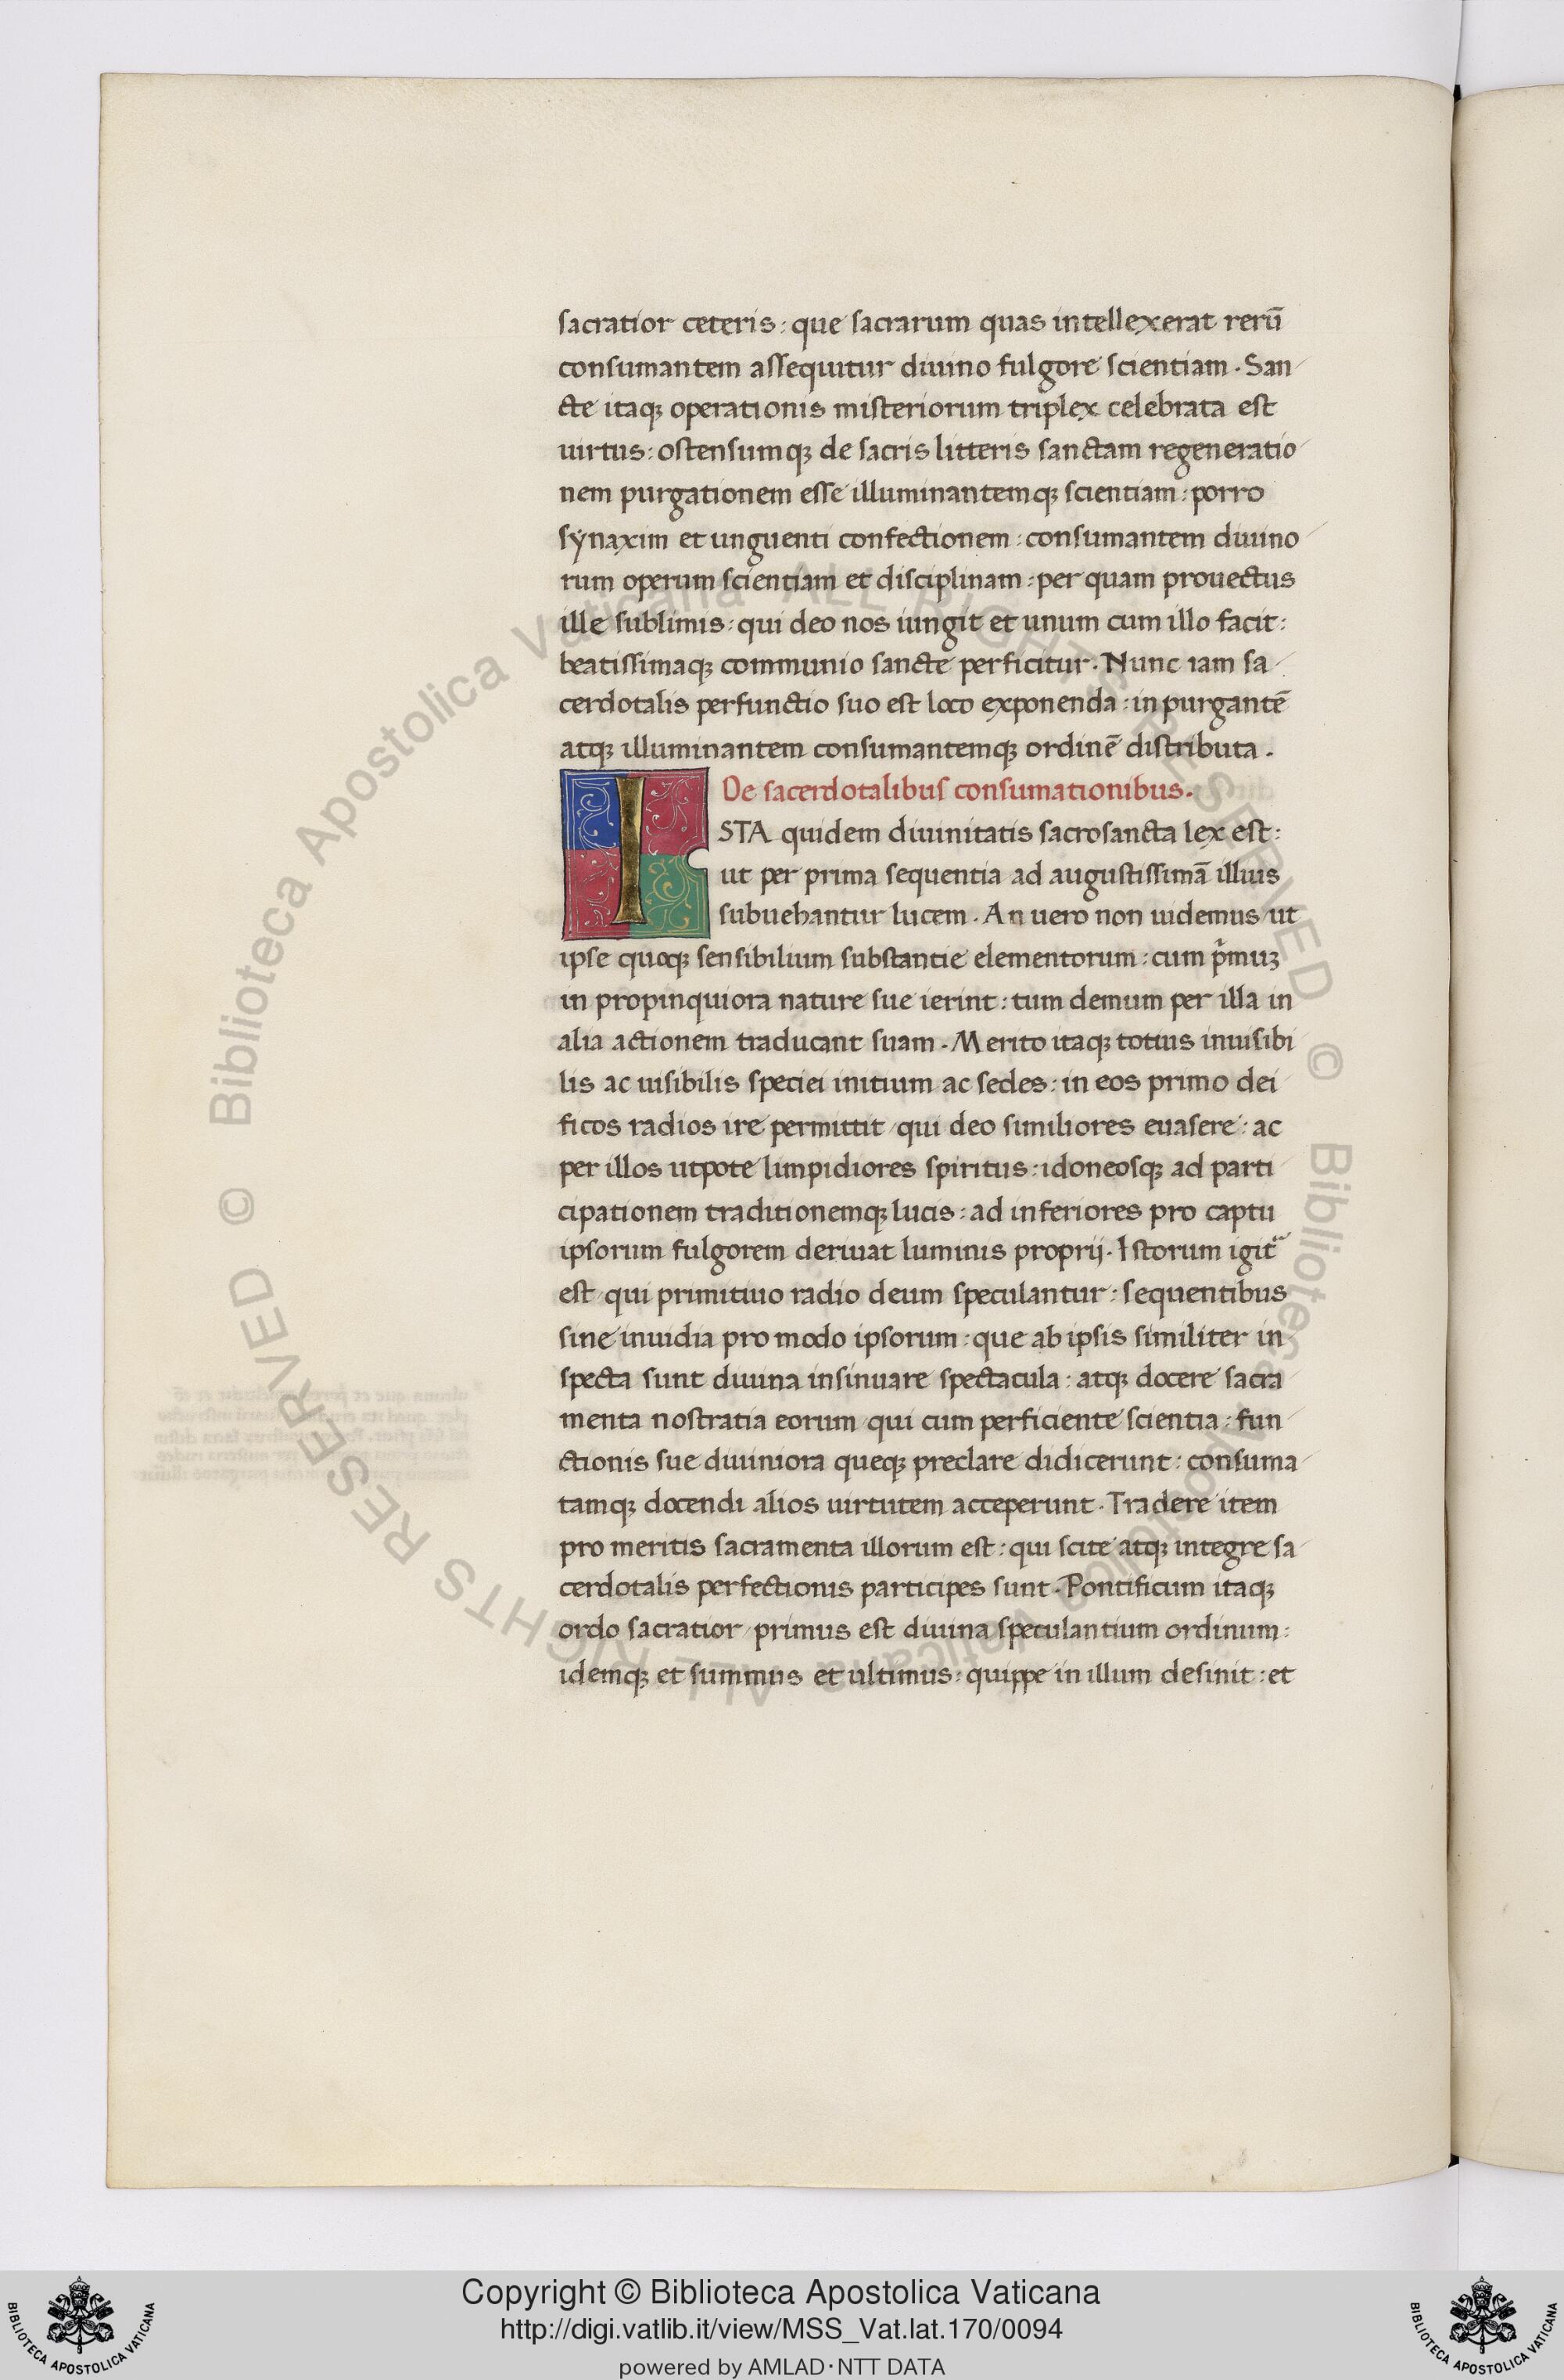 sacratior ceteris: que sacrarum quas intellexerat rerū
consumantem assequitur diuino fulgore scientiam. San
cte itaqꝫ operationis misteriorum triplex celebrata est
uirtus: ostensumqꝫ de sacris litteris sanctam regeneratio
nem purgationem esse illuminantemqꝫ scientiam: porro
synaxim et unguenti confectionem: consumantem diuino
rum operum scientiam et disciplinam: per quam prouectus
ille sublimis: qui deo nos iungit et unum cum illo facit:
beatissimaqꝫ communio sancte perficitur. Nunc iam sa
cerdotalis perfunctio suo est loco exponenda: in purgantē
atqꝫ illuminantem consumantemqꝫ ordinē distributa.
De sacerdotalibus consumationibus.
ISTA quidem diuinitatis sacrosancta lex est:
ut per prima sequentia ad augustissimā illius
subuehantur lucem. An uero non uidemus ut
ipse quoqꝫ sensibilium substantie elementorum: cum p̄muꝫ
in propinquiora nature sue ierint: tum demum per illa in
alia actionem traducant suam. Merito itaqꝫ totius inuisibi
lis ac uisibilis speciei initium ac sedes: in eos primo dei
ficos radios ire permittit qui deo similiores euasere: ac
per illos utpote limpidiores spiritus: idoneosqꝫ ad parti
cipationem traditionemqꝫ lucis: ad inferiores pro captu
ipsorum fulgorem deriuat luminis proprij. Istorum igit᷑
est qui primitiuo radio deum speculantur: sequentibus
sine inuidia pro modo ipsorum: que ab ipsis similiter in
specta sunt diuina insinuare spectacula: atqꝫ docere sacra
menta nostratia eorum qui cum perficiente scientia: fun
ctionis sue diuiniora queqꝫ preclare didicerunt: consuma
tamqꝫ docendi alios uirtutem acceperunt. Tradere item
pro meritis sacramenta illorum est: qui scite atqꝫ integre sa
cerdotalis perfectionis participes sunt. Pontificum itaqꝫ
ordo sacratior primus est diuina speculantium ordinum:
idemqꝫ et summus et ultimus: quippe in illum desinit: et
© Biblioteca Apostolica Vaticana ALL RIGHTS RESERVED
© Biblioteca Apostolica Vaticana ALL RIGHTS RESERVED
Copyright © Biblioteca Apostolica Vaticana
http://digi.vatlib.it/view/MSS_Vat.lat.170/0094
powered by AMLAD·NTT DATA
BIBLIOTECA APOSTOLICA VATICANA
BIBLIOTECA APOSTOLICA VATICANA